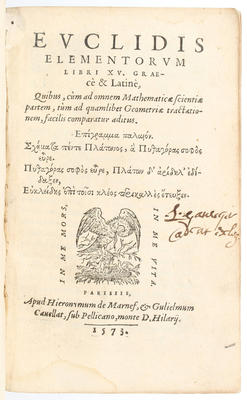 EVCLIDIS
ELEMENTORVM
LIBRI XV. GRAE-
cè & Latinè,
Quibus, cùm ad omnem Mathematicæ scientiæ
partem, tùm ad quamlibet Geometriæ tractatio-
nem, facilis comparatur aditus.
Ἐπίγραμμα παλαιόν.
Σχήματα πέντε Πλάτωνος, ἃ Πυθαγόρας σοφὸς
εὗρε.
Πυθαγόρας σοφὸς εὗρε, Πλάτων δ' ἀρίδηλ' ἐδί-
δαξεν,
Εὐκλείδης ἐπὶ τοῖσι κλέος περικαλλὲς ἔτευξεν.
IN ME MORS,
IN ME VITA.
PARISIIS,
Apud Hieronymum de Marnef, & Gulielmum
Cauellat, sub Pellicano, monte D. Hilarij.
1573.